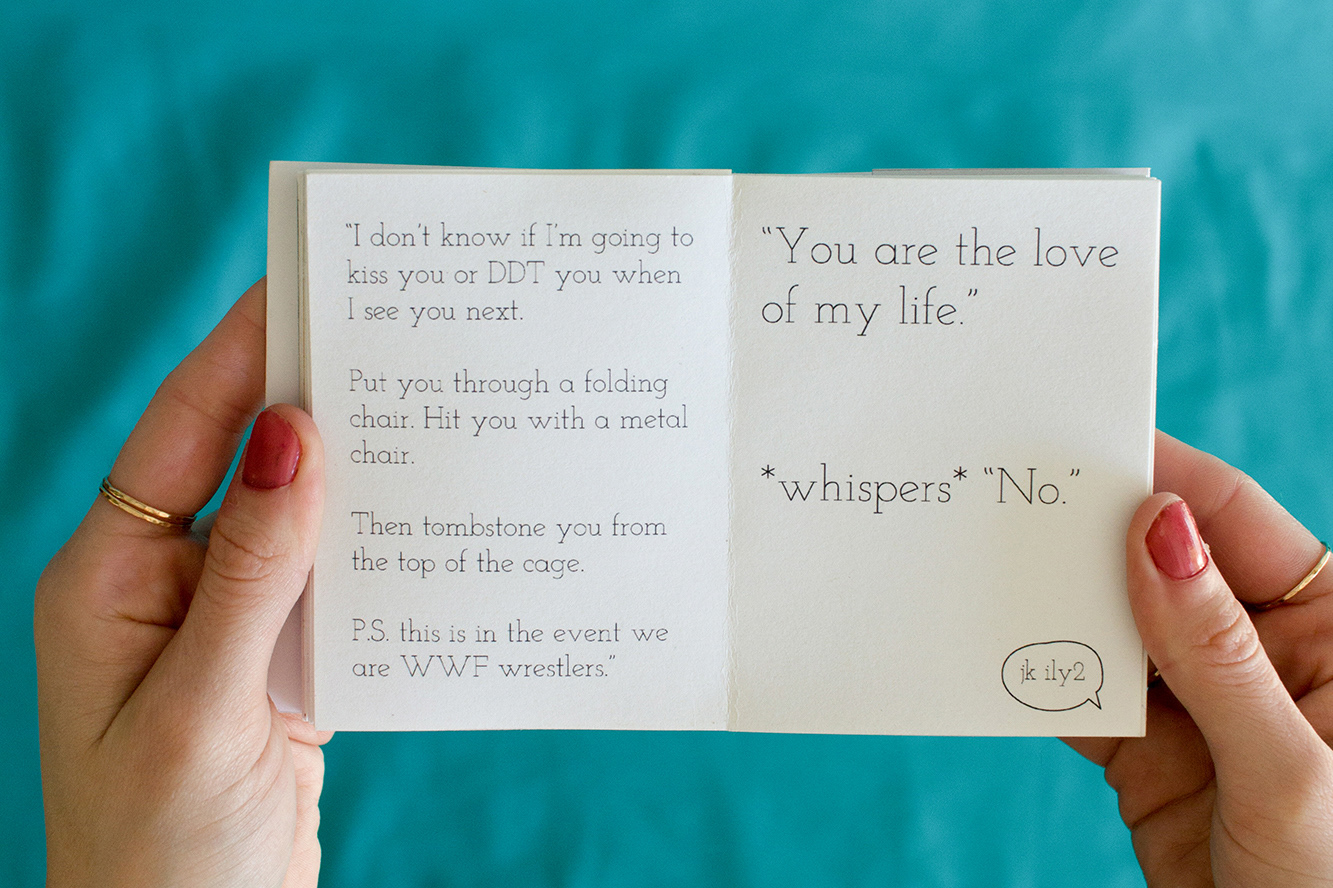 “I don’t know if I’m going to
kiss you or DDT you when
I see you next.
Put you through a folding
chair. Hit you with a metal
chair.
Then tombstone you from
the top of the cage.
P.S. this is in the event we
are WWF wrestlers.”
“You are the love
of my life.”
*whispers* “No.”
jk ily2